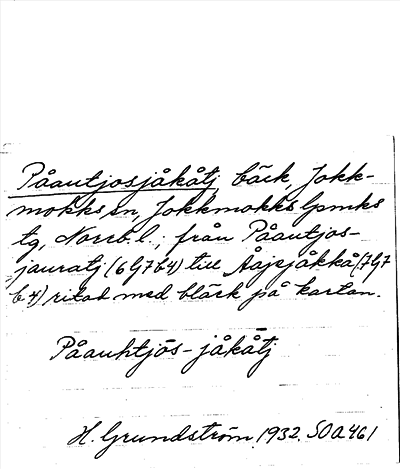 Påautjosjåkåtj, bäck, Jokk-
mokks sn, Jokkmokks lpmks
tg, Norrb. l.; från Påautjos-
jauratj (6G7b4) till Åajejåkkå (7G7
b4) ritad med bläck på kartan.
Påauhtjōs-jåkåtj
H. Grundström 1932. SOA 461